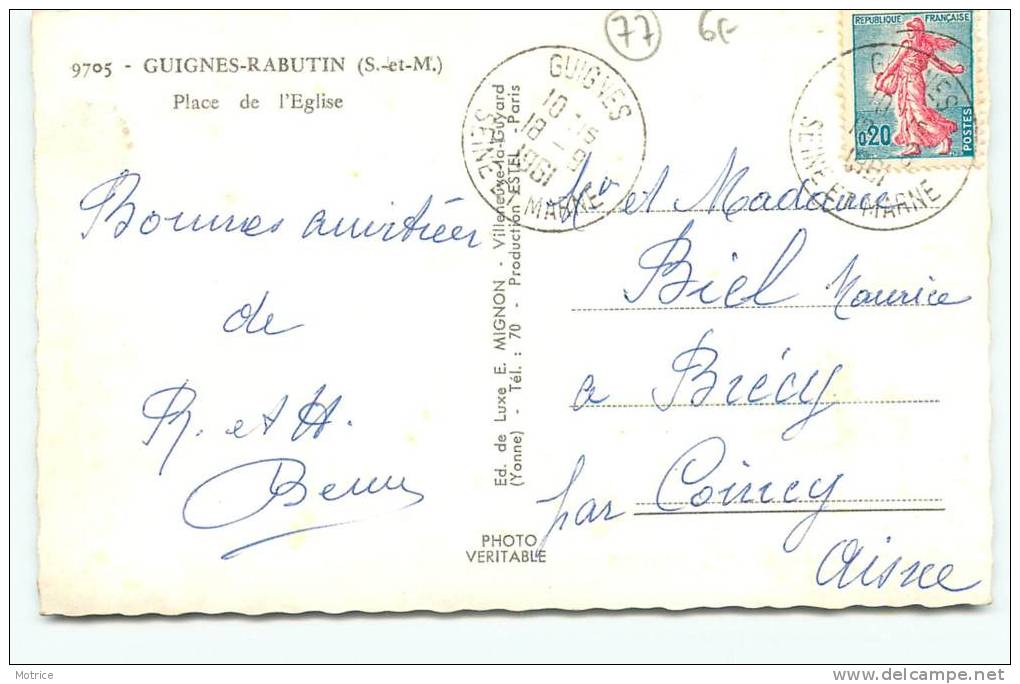 77
6F
9705 - GUIGNES-RABUTIN (S.-et-M.)
Place de l'Eglise
Bonnes amitiées
de
R. et H.
GUIGNES
10 H 15
18 - 9
1961
SEINE ET MARNE
Ed. de Luxe E. MIGNON - Villeneuve-la-Guyard
(Yonne) - Tél. : 70 - Production ESTEL - Paris
PHOTO
VERITABLE
REPUBLIQUE FRANÇAISE
0,20
POSTES
GUIGNES
1961
SEINE ET MARNE
Mr et Madame
Biel Maurice
a Brécy
par Coincy
Aisne
Motrice
delcampe.net